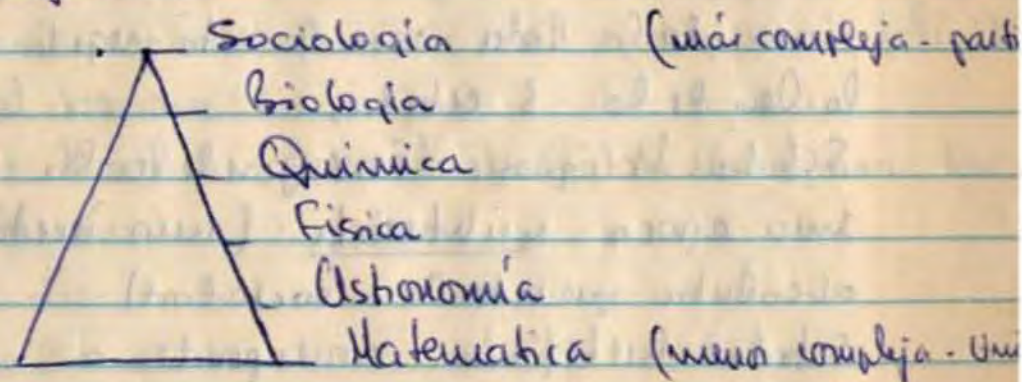 Sociologia (más compleja - parti
Biologia
Química
Fisica
Astronomía
Matematica (menos compleja - Uni